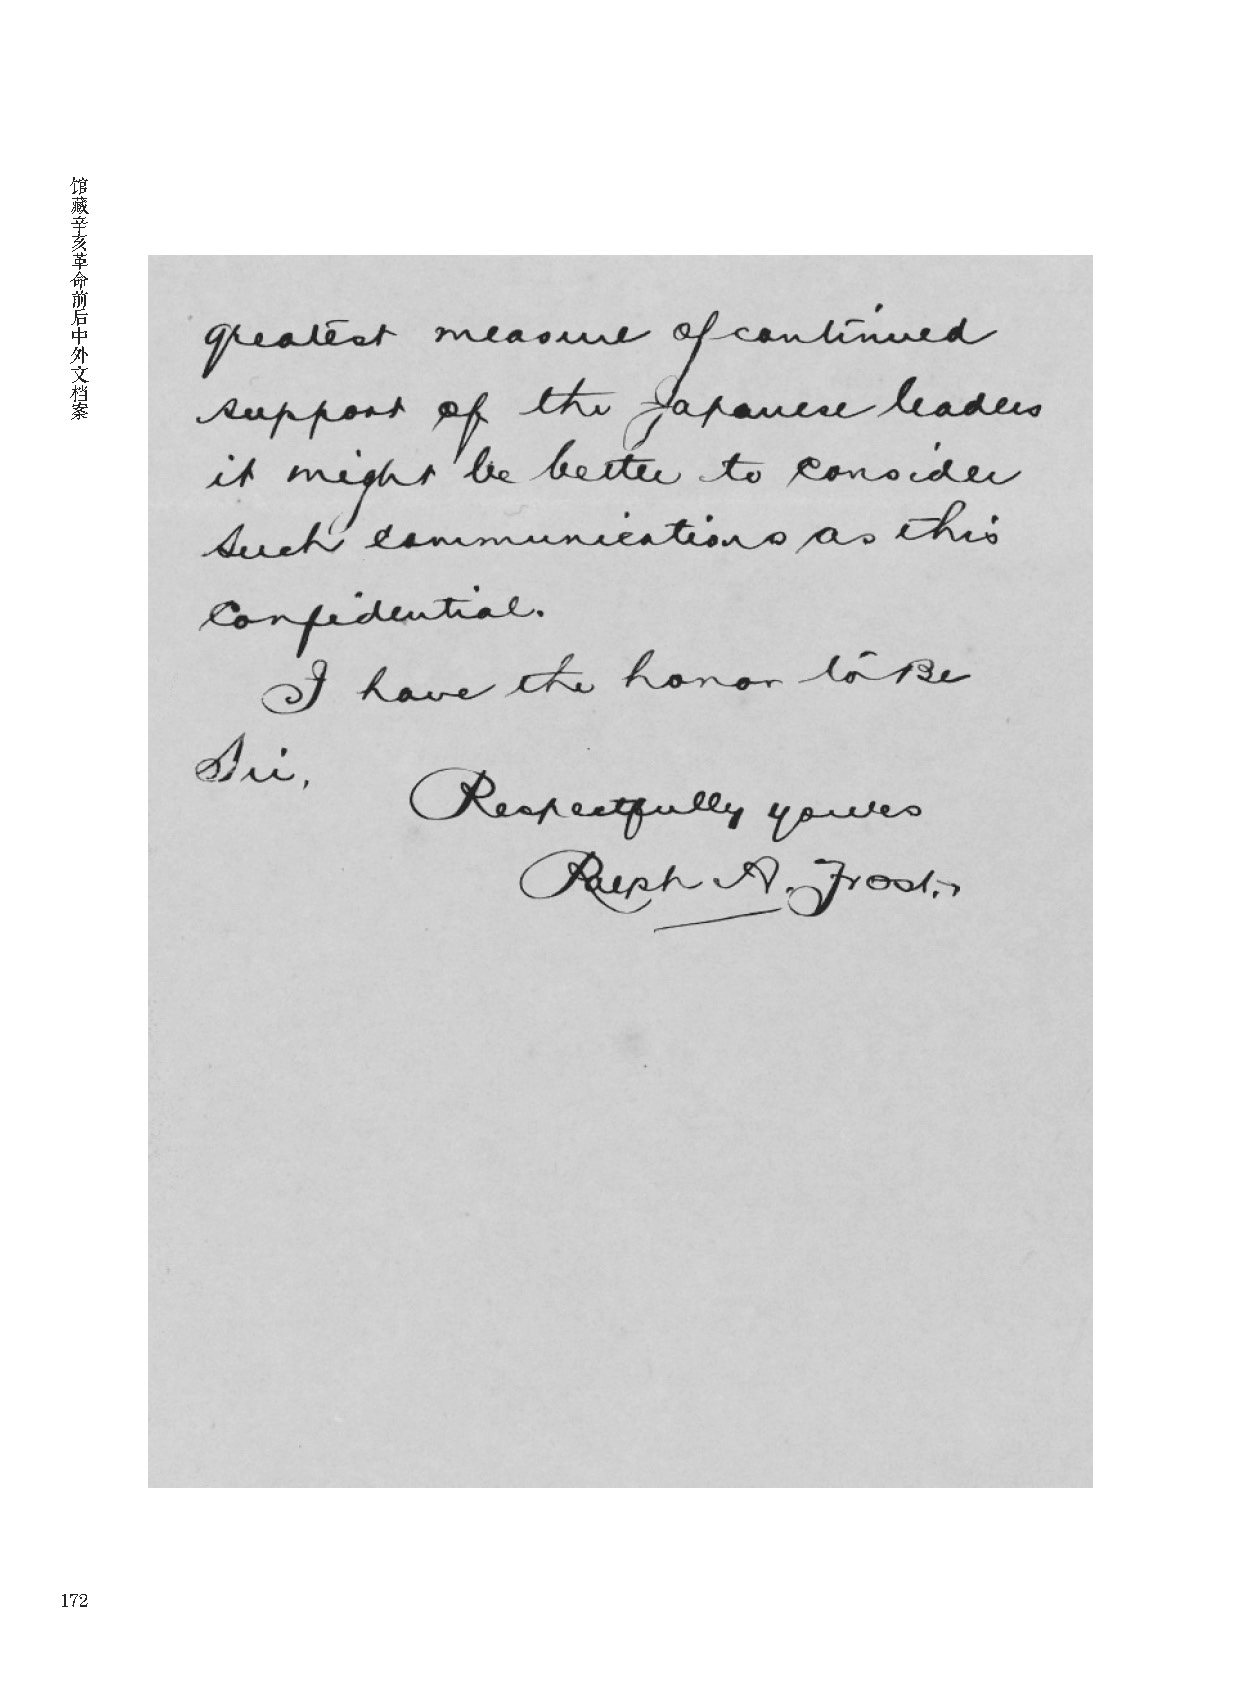 馆藏辛亥革命前后中外文档案
greatest measure of continued
support of the Japanese leaders
it might be better to consider
such communications as this
confidential.
I have the honor to Be
Sir,
Respectfully yours
Ralph A. Frost.
172